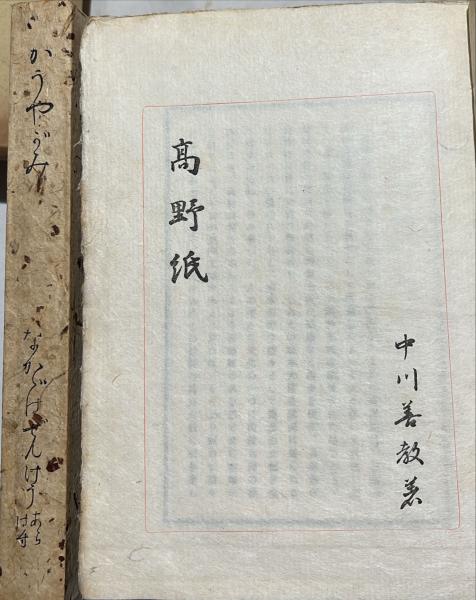 髙野紙
中川善教著
かうやがみ
なかゞはぜんけう
あら
はす